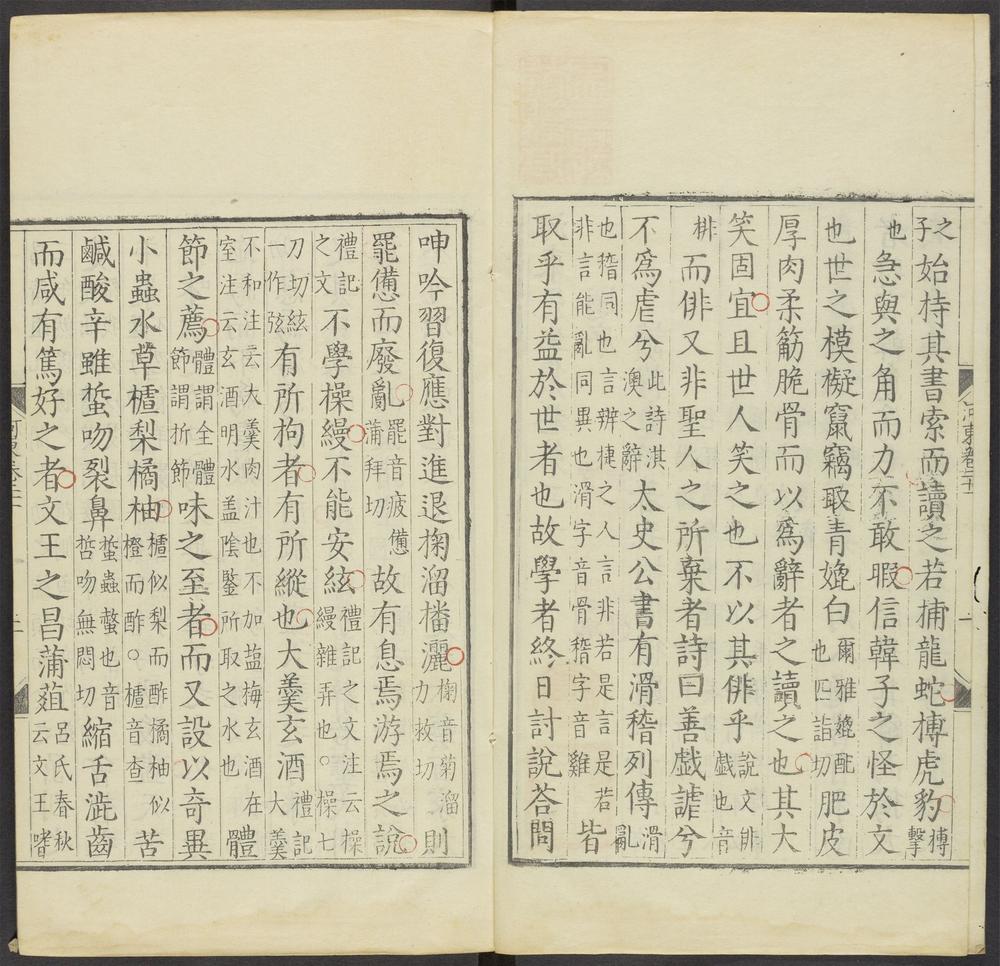 之子始持其書索而讀之若捕龍蛇搏虎豹搏擊
也急與之角而力不敢暇信韓子之怪於文
也世之模擬竄竊取青媲白爾雅媲配也匹詣切肥皮
厚肉柔筋脆骨而以爲辭者之讀之也其大
笑固宜且世人笑之也不以其俳乎說文俳戲也音
棑而俳又非聖人之所棄者詩曰善戲謔兮
不爲虐兮此詩淇澳之辭太史公書有滑稽列傳滑亂
也稽同也言辨捷之人言非若是言是若非言能亂同異也滑字音骨稽字音雞皆
取乎有益於世者也故學者終日討說荅問
呻吟習復應對進退掬溜播灑掬音菊溜力救切則
罷憊而廢亂罷音疲憊蒲拜切故有息焉游焉之說
禮記之文不學操縵不能安絃禮記之文注云操縵雜弄也。操七
刀切絃一作弦有所拘者有所縱也大羹玄酒禮記大羹
不和注云大羹肉汁也不加盐梅玄酒在室注云玄酒明水盖陰鑒所取之水也體
節之薦體謂全體節謂折節味之至者而又設以奇異
小蟲水草樝梨橘柚樝似梨而酢橘柚似橙而酢。樝音查苦
鹹酸辛雖蜇吻裂鼻蜇蟲螫也音哲吻無悶切縮舌澁齒
而咸有篤好之者文王之昌蒲葅呂氏春秋云文王嗜
河東卷二十一
一
二